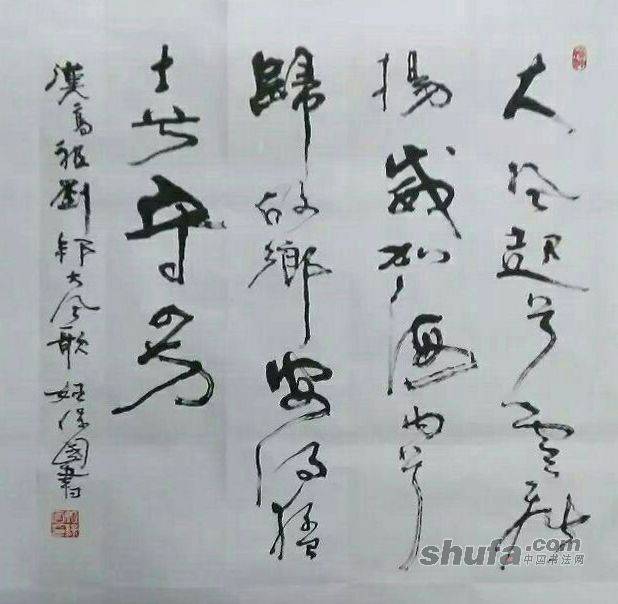 大風起兮雲飛
揚威加海內兮
歸故鄉安得猛
士兮守四方
漢高祖劉邦大風歌 保國書
shufa.com
中国书法网